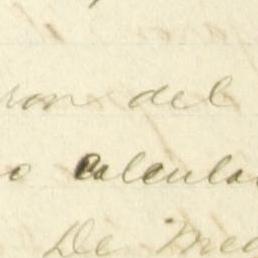 ron del
o calcula
De Med